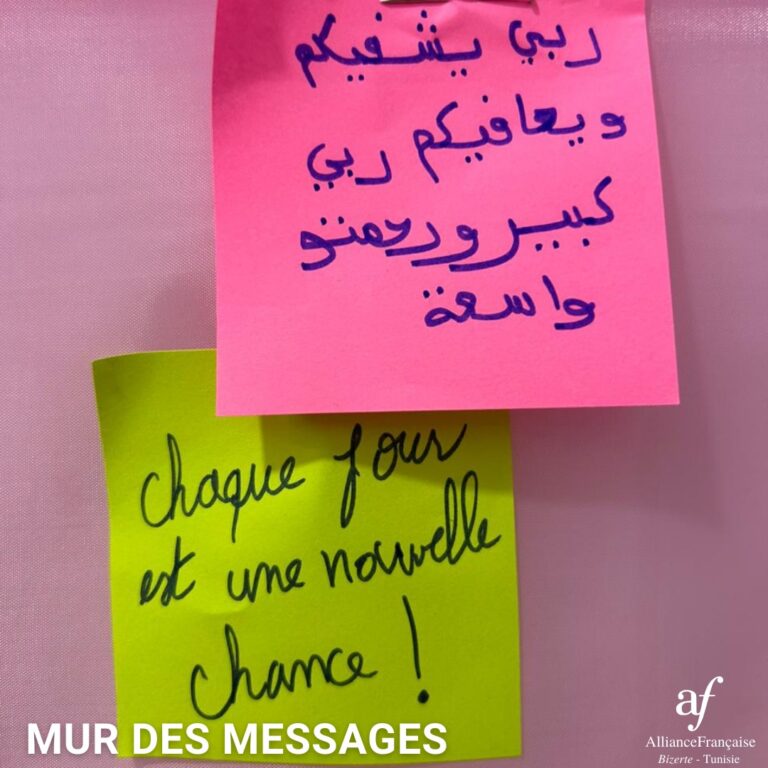 ربي يشفيكم
ويعافيكم ربي
كبير ورحمتو
واسعة
chaque jour
est une nouvelle
chance !
MUR DES MESSAGES
af
AllianceFrançaise
Bizerte - Tunisie